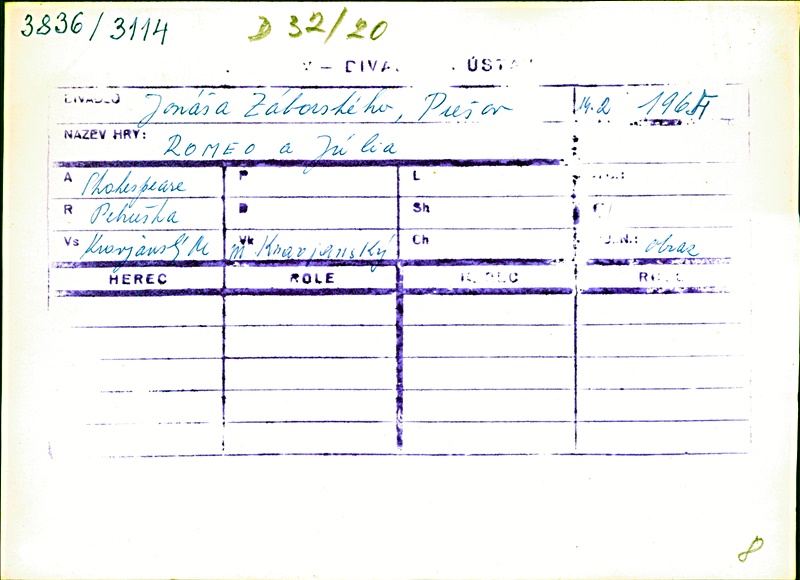 3836/3114 D 32/20
DIVADLO Jonáša Záborského, Prešov 14.2
NÁZEV HRY: ROMEO a Júlia
A Shakespeare P L
R Petruška D Sh
Vs Kravjanský M Vk M Kravjanský Ch obraz
HEREC ROLE HEREC ROLE
8